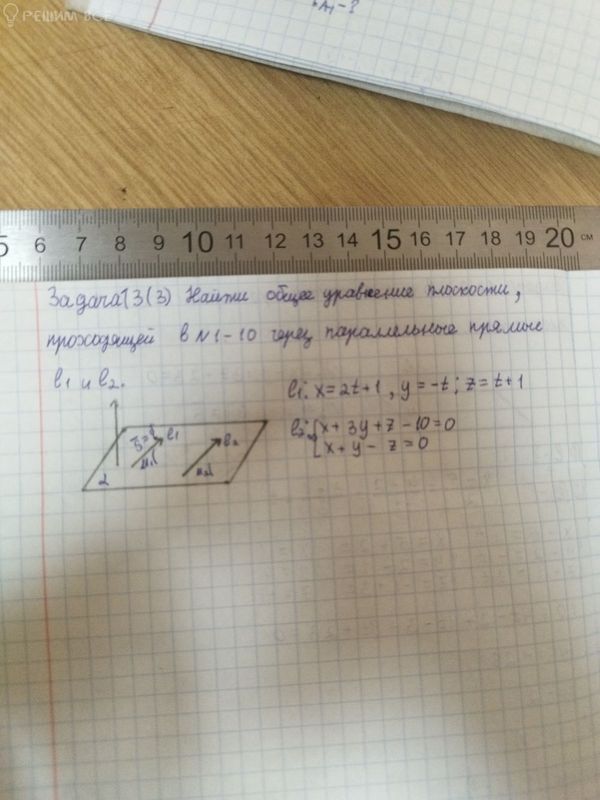 РЕШИМ ВСЕ
5 6 7 8 9 10 11 12 13 14 15 16 17 18 19 20 см
Задача 13(3) Найти общее уравнение плоскости,
проходящей в №1-10 через параллельные прямые
l1 и l2.
l1: x=2t+1, y=-t; z=t+1
l2: x+3y+z-10=0
x+y-z=0
l1
l2
2